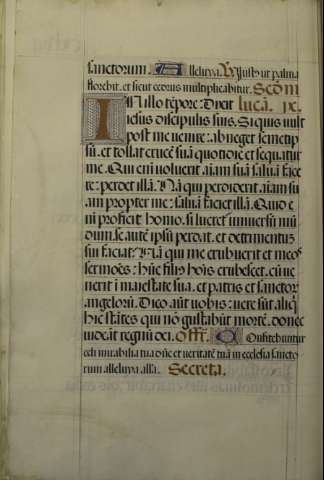 sanctorum. Alleluya. V Just⁹ ut palma
florebit. et sicut cedrus multiplicabitur. Scdm
IN illo tēpore: Dixit lucā. ix.
iesus discipulis suis. Si quis vult
post me venire: abneget semetip
sū. et tollat crucē suā quotidie et sequatur
me. Qui eni voluerit aiam suā salvā face
re: perdet illā. Nā qui perdiderit aiam su
am propter me: salvā faciet illā. Quid e
ni proficit homo. si lucret̄ universū mū
dum. se autē ipsū perdat. et detrimentū
sui faciat: Nā qui me erubuerit et meos
sermōes: hūc filius hōis erubescet. cū ve
nerit i maiestate sua. et patris et sanctor
angelorū. Dico aūt vobis: vere sūt aliq̄
hic stātes qui nō gustabūt mortē. donec
videāt regnū dei. Offr. Confitebuntur
celi mirabilia tua dn̄e et veritatē tuā in ecclesia sancto
rum alleluya alla. Secreta.